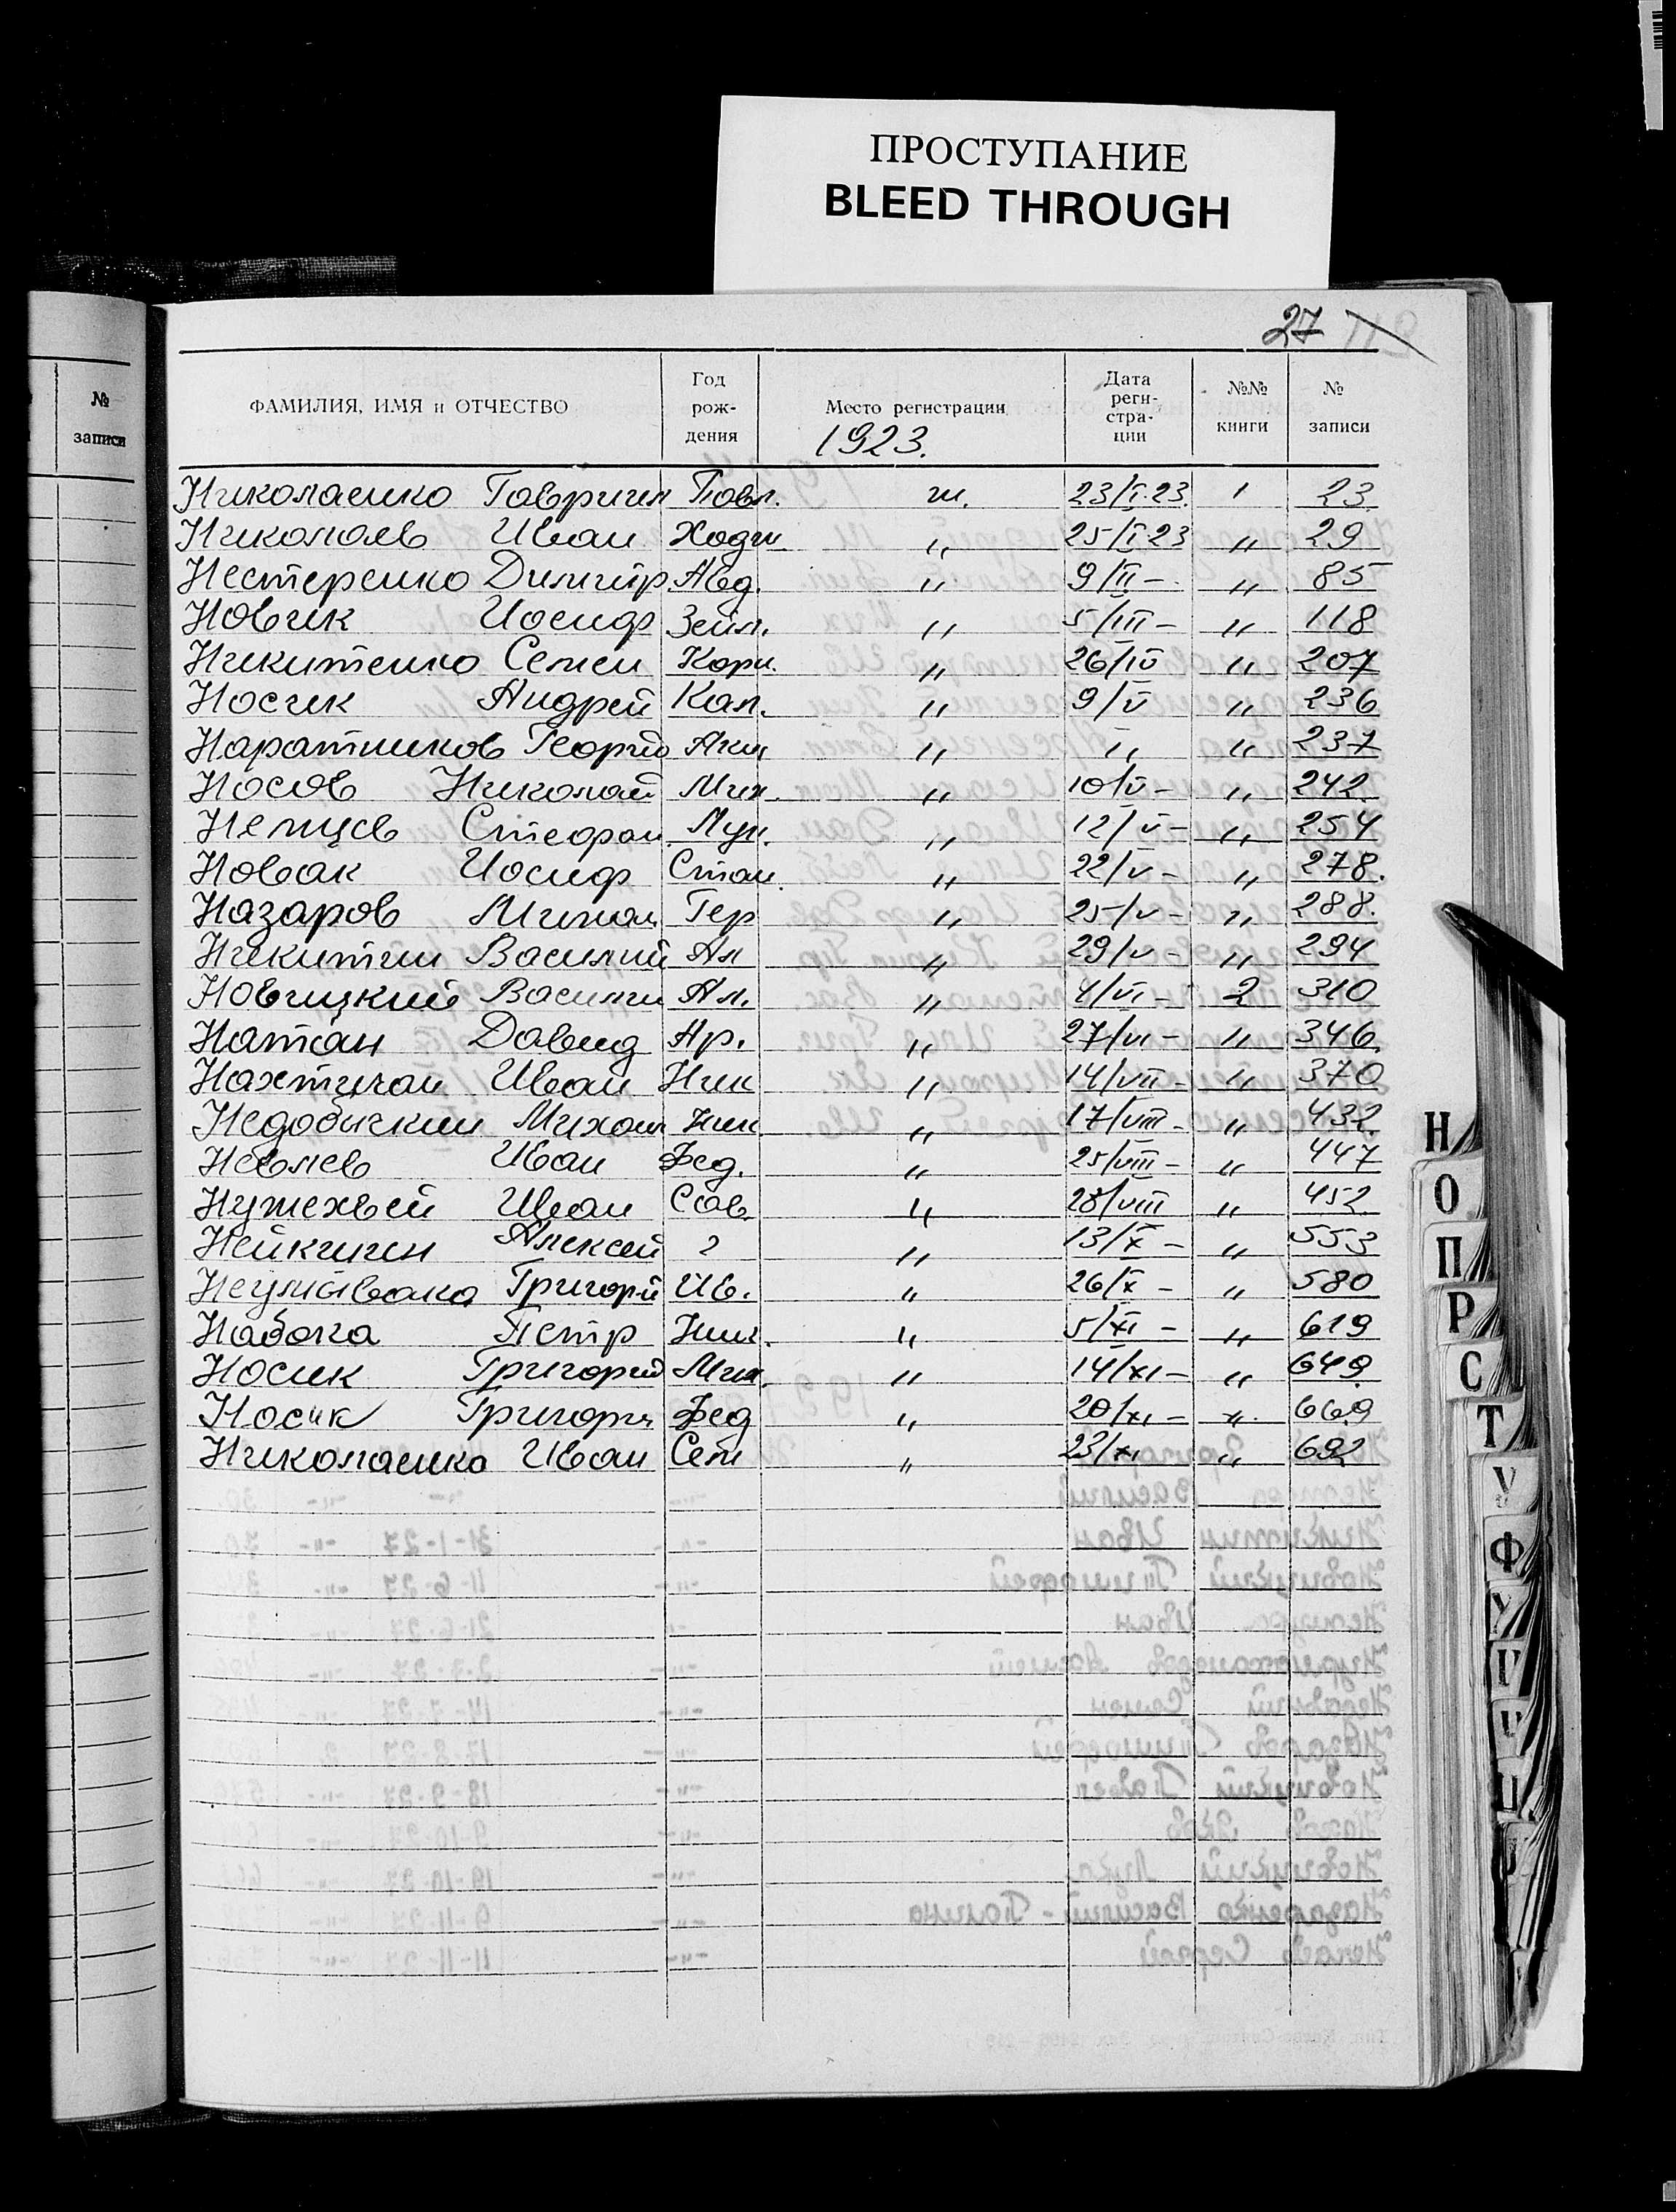 ПРОСТУПАНИЕ
BLEED THROUGH
27
№ записи
ФАМИЛИЯ, ИМЯ и ОТЧЕСТВО Год рож-дения Место регистрации Дата реги-стра-ции №№ книги № записи
1923.
Николаенко Гавриил Павл. ж. 23/I.23. 1 23
Николаев Иван Ходж „ 25/I.23 „ 29
Нестеренко Димитр Авд. „ 9/II – „ 85
Новик Иосиф Зейл. „ 5/III – „ 118
Никитенко Семен Корн. „ 26/IV „ 207
Носик Андрей Кал. „ 9/V „ 236
Наратников Георгий Аким „ „ „ 237
Носов Николай Мих. „ 10/V – „ 242
Немцев Стефан Лук. „ 12/V – „ 254
Новак Иосиф Стан. „ 22/V – „ 278.
Назаров Михаил Гер „ 25/V – „ 288.
Никитин Василий Ал „ 29/V – „ 294
Новицкий Василий Ал. „ 4/VI – 2 310
Натан Давид Ар. „ 27/VI – „ 346
Нахтигал Иван Ник „ 14/VII – „ 370
Недобичкий Михаил Ник. „ 17/VIII – „ 432
Невлев Иван Фед. „ 25/VIII – „ 447
Нужехвей Иван Сав. „ 28/VIII „ 452
Нейкиген Алексей ? „ 13/X – „ 553
Неумывака Григорй Ив. „ 26/X – „ 580
Набока Петр Ник. „ 5/XI – „ 619
Носик Григорий Мих. „ 14/XI – „ 649
Носик Григори Фед „ 20/XI – „ 669
Николаенко Иван Сем „ 23/XI „ 692
Н
О
П
Р
С
Т
У
Ф